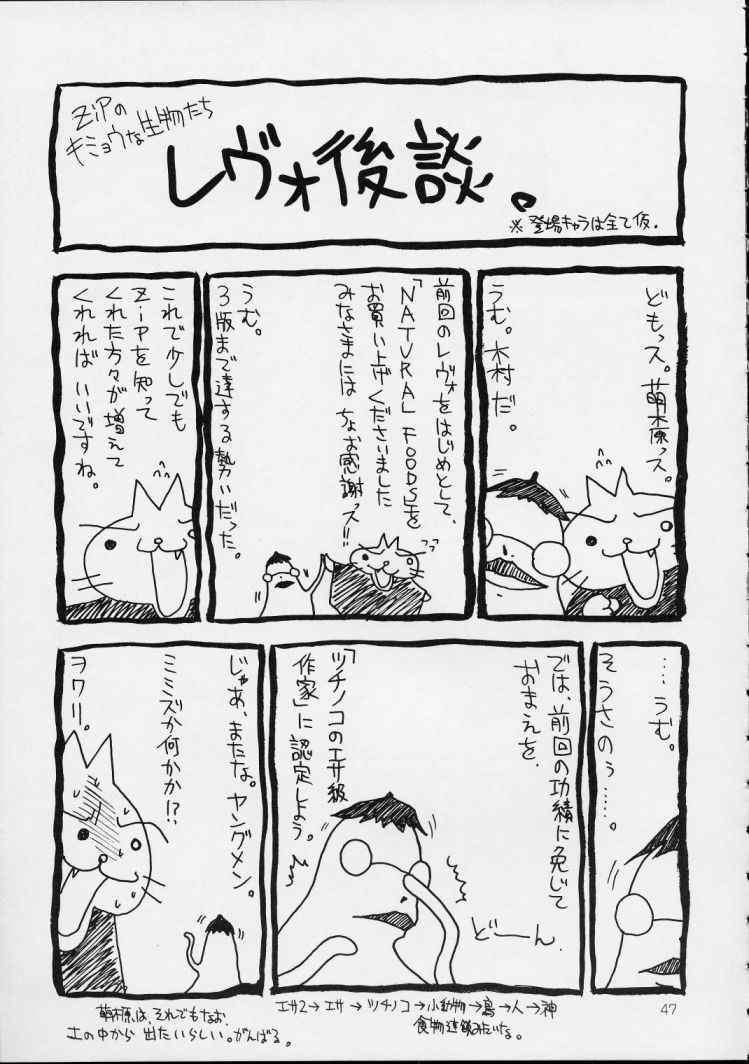 ZiPの
キミョウな生物たち
レヴォ後談。
※登場キャラは全て仮.
どもっス。萌木原っス。
うむ。木村だ。
前回のレヴォをはじめとして、
「NATURAL FOODS」を
お買い上げくださいました
みなさまには ちょお感謝ッス!!
うむ。
3版まで達する勢いだった。
これで少しでも
ZiPを知って
くれた方々が増えて
くれれば いいですね。
…うむ。
そうさのぅ……。
では、前回の功績に免じて
おまえを、
「ツチノコのエサ級
作家」に認定しよう。
どーん.
じゃあ、またな。ヤングメン。
ミミズか何かか!?
ヲワリ。
エサ2→エサ→ツチノコ→小動物→鳥→人→神
食物連鎖みたいな。
萌木原は、それでもなお、
土の中から 出たいらしい。がんばる。
47